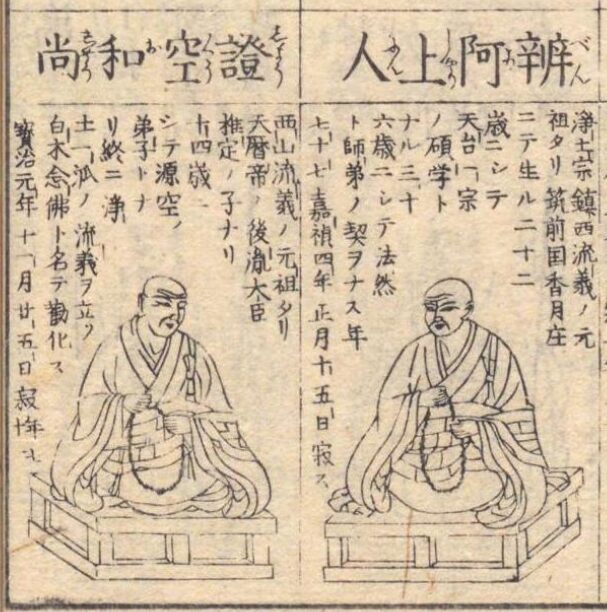 辨阿上人
浄土宗鎮西流義ノ元
祖タリ筑前国香月庄
ニテ生ル二十二
歳ニシテ
天台一宗
ノ碩学ト
ナル三十
六歳ニシテ法然
ト師弟ノ契ヲナス年
七十七嘉禎四年正月十五日寂ス
證空和尚
西山流義ノ元祖タリ
天暦帝ノ後胤大臣
推定ノ子ナリ
十四歳ニ
シテ源空ノ
弟子トナ
リ終ニ浄
土一派ノ流義ヲ立ツ
白木念佛ト名テ勸化ス
寳治元年十一月廿五日寂